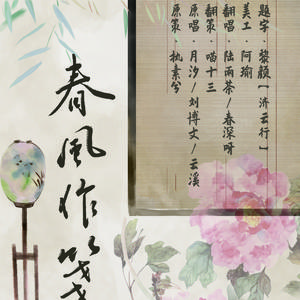 春風作箋
题字·黎颜【济云行】
美工·阿瑜
翻唱·陆雨茶/春深呀
翻策·喵十三
原唱·月汐/刘博文/云溪
原策·执素兮